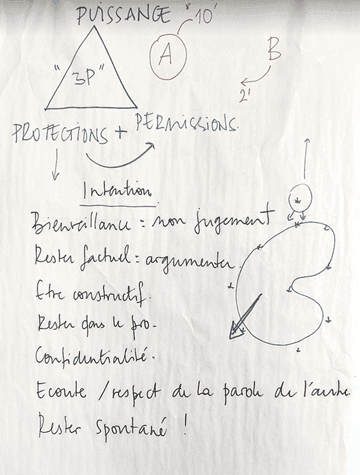 PUISSANCE
10'
A
B
"3P"
2'
PROTECTIONS + PERMISSIONS
Intention
Bienveillance = non jugement
Rester factuel = argumenter.
Etre constructif.
Rester dans le pro.
Confidentialité.
Ecoute / respect de la parole de l'autre
Rester spontané !